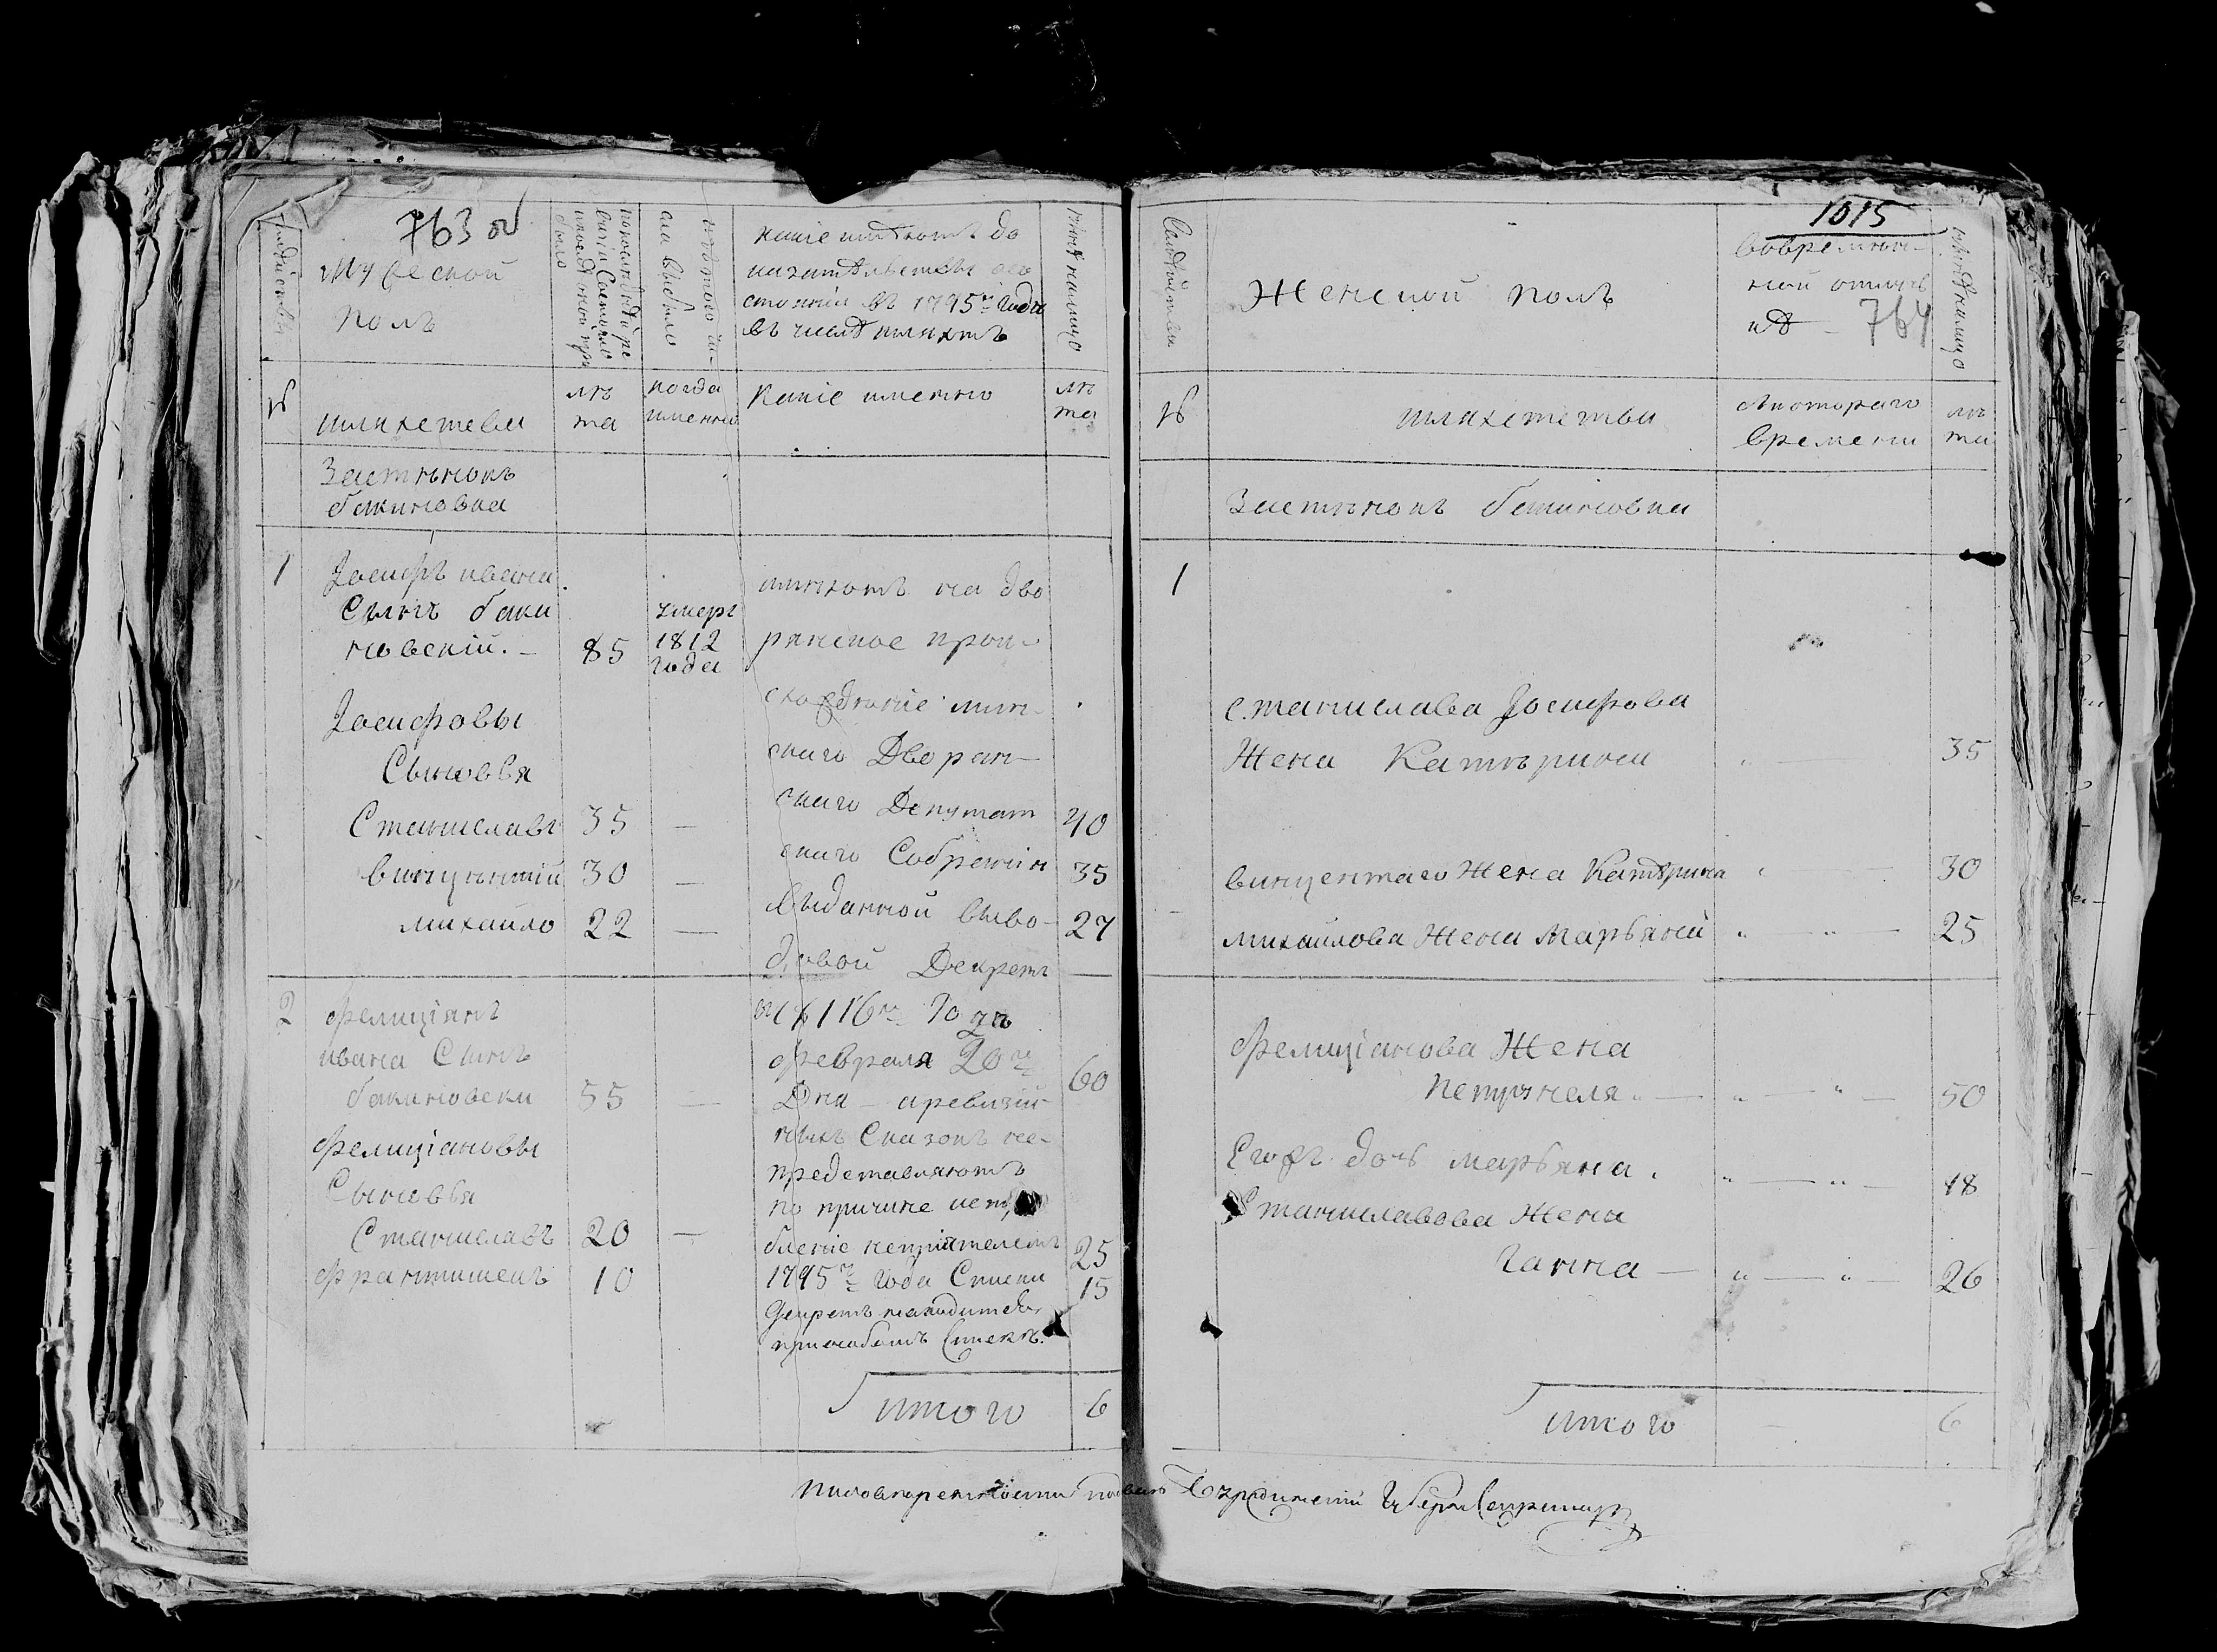 763 об
Мужеской
полъ
по последней ре
визіи Состояло
изъ того чи-
сла выбыло
какіе имѣютъ до
казательствы осо
стояніи въ 1795м годѣ
въ числѣ шляхтъ
нынѣ налицо
№
шляхетсва
лѣ
та
когда
именно
Какіе именно
лѣ
та
Застѣнокъ
бакиновка
1
Іосифъ ивана
Сынъ баки
новскій. –
85
умерг
1812
года
имеютъ на дво
рянское прои-
схожденіе мин-
скаго Дворян-
скаго Депутат
скаго Собранія
выданной выво-
довой Декретъ
Іосифовы
Сыновья
Станиславъ 35 — 40
винцентій 30 — 35
михайло 22 — 27
2
фелиціанъ
ивана Сынъ
бакиновски 55 — 60
1816го года
февраля 20го
Дня – аревизій
ныхъ Сказокъ не-
представляютъ
по причине
бленіе непріятелемъ
1795го года Списки
Декретъ находитсѧ
фелиціановы
Сыновья
Станиславъ 20 — 25
францишекъ 10 15
итого 6
1015
764
Женской полъ
вовременн-
ной отлуч
кѣ –
нынѣ налицо
№
шляхетства
Скотораго
времени
лѣ
та
Застѣнокъ бакиновка
1
Станислава Іосифова
Жена Катѣрина 35
винцентаго Жена Катѣрина 30
михайлова Жена Марьяна 25
фелиціанова Жена
Петрунеля 50
дочь марьяна 18
Станиславова Жена
Ганна — 26
итого 6